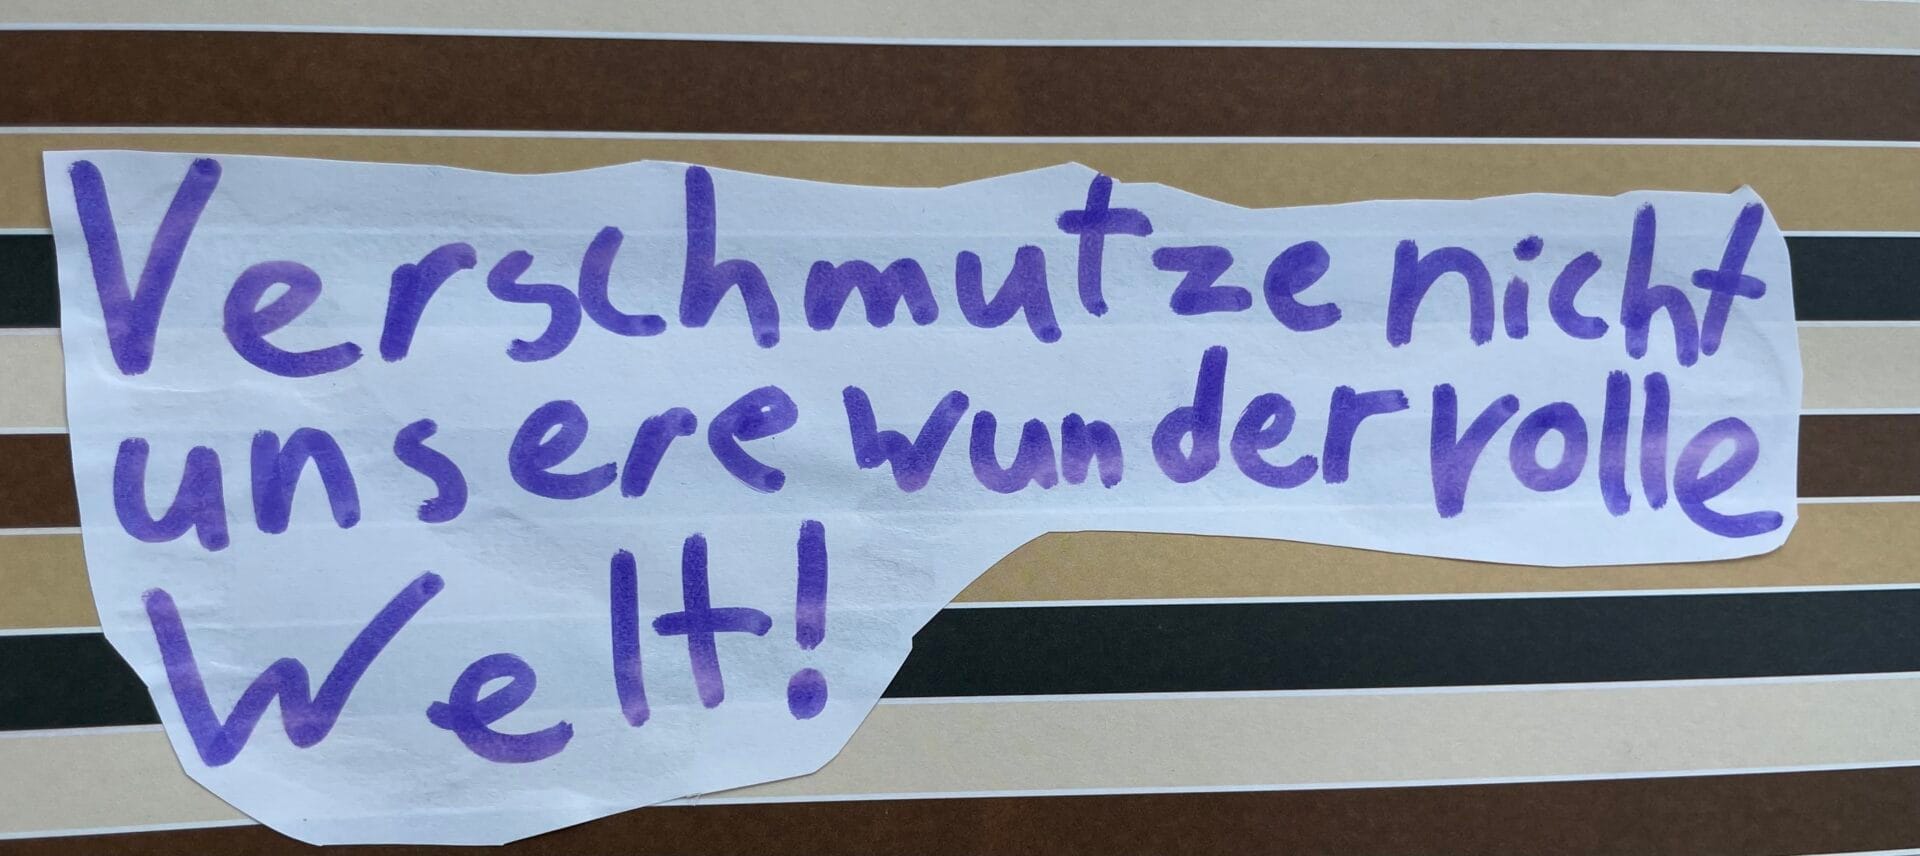 Verschmutze nicht
unsere wundervolle
Welt!